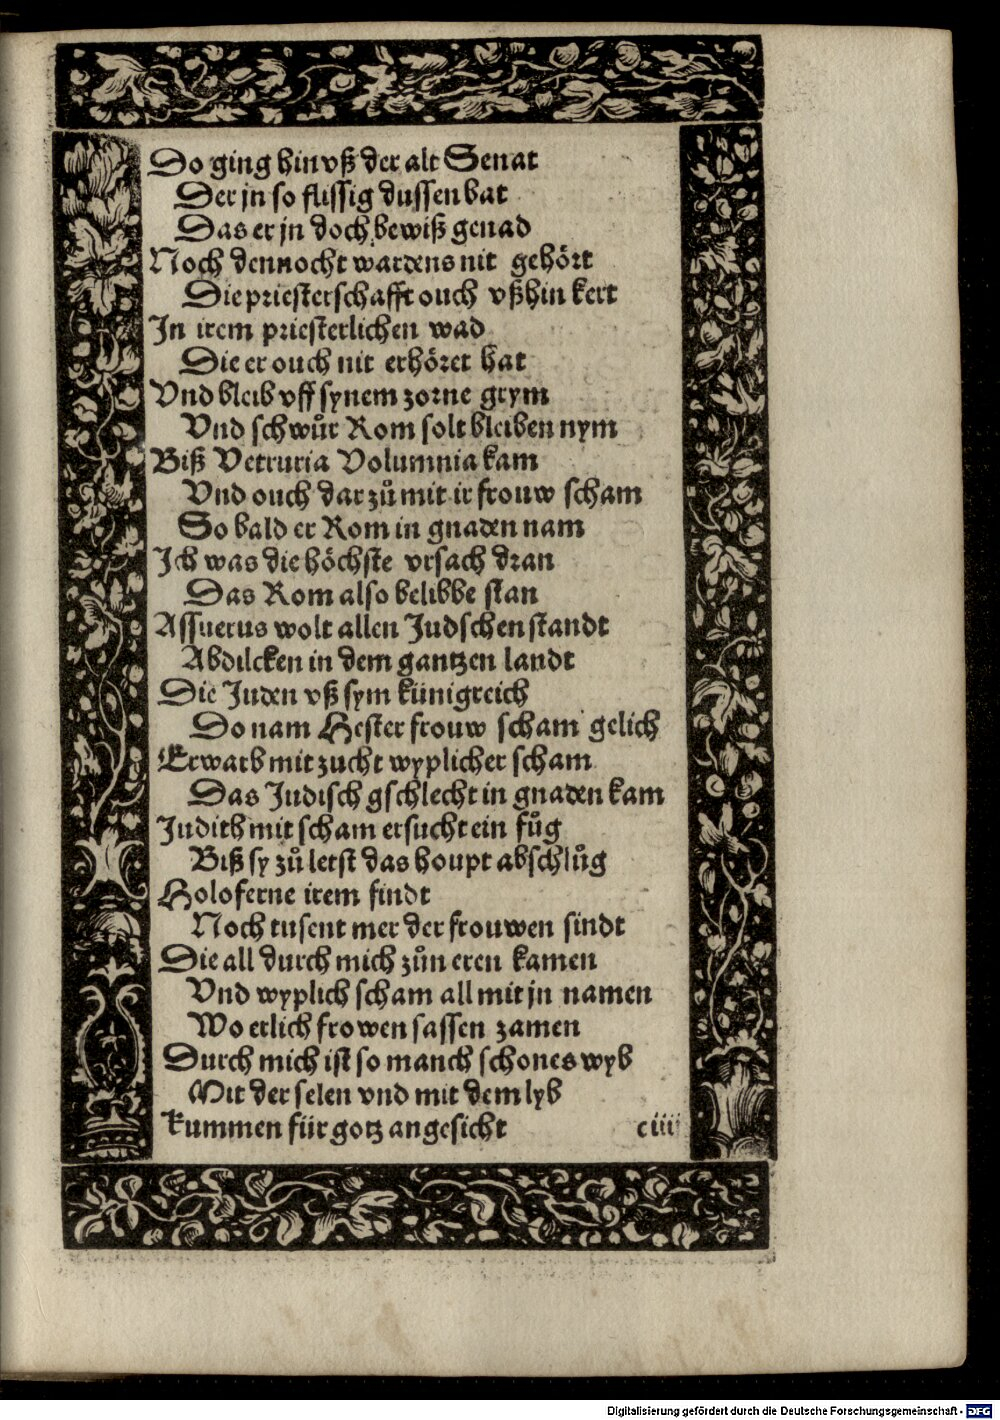 Do ging hin vß der alt Senat
Der jn so flissig dussen bat
Das er jn doch bewiß genad
Noch dennocht wardens nit gehört
Die priesterschafft ouch vßhin kert
In irem priesterlichen wad
Die er ouch nit erhöret hat
Vnd bleib vff synem zorne grym
Vnd schwůr Rom solt bleiben nym
Biß Vetruria Volumnia kam
Vnd ouch dar zů mit ir frouw scham
So bald er Rom in gnaden nam
Ich was die höchste vrsach dran
Das Rom also belibbe stan
Assuerus wolt allen Judschen standt
Abdilcken in dem gantzen landt
Die Juden vß sym künigreich
Do nam Hester frouw scham gelich
Erwarb mit zucht wyplicher scham
Das Judisch gschlecht in gnaden kam
Judith mit scham ersucht ein fůg
Biß sy zů letst das houpt abschlůg
Holoferne irem findt
Noch tusent mer der frouwen sindt
Die all durch mich zůn eren kamen
Vnd wyplich scham all mit jn namen
Wo etlich frowen sassen zamen
Durch mich ist so manch schones wyb
Mit der selen vnd mit dem lyb
kummen für gotz angesicht ciiij
Digitalisierung gefördert durch die Deutsche Forschungsgemeinschaft - DFG